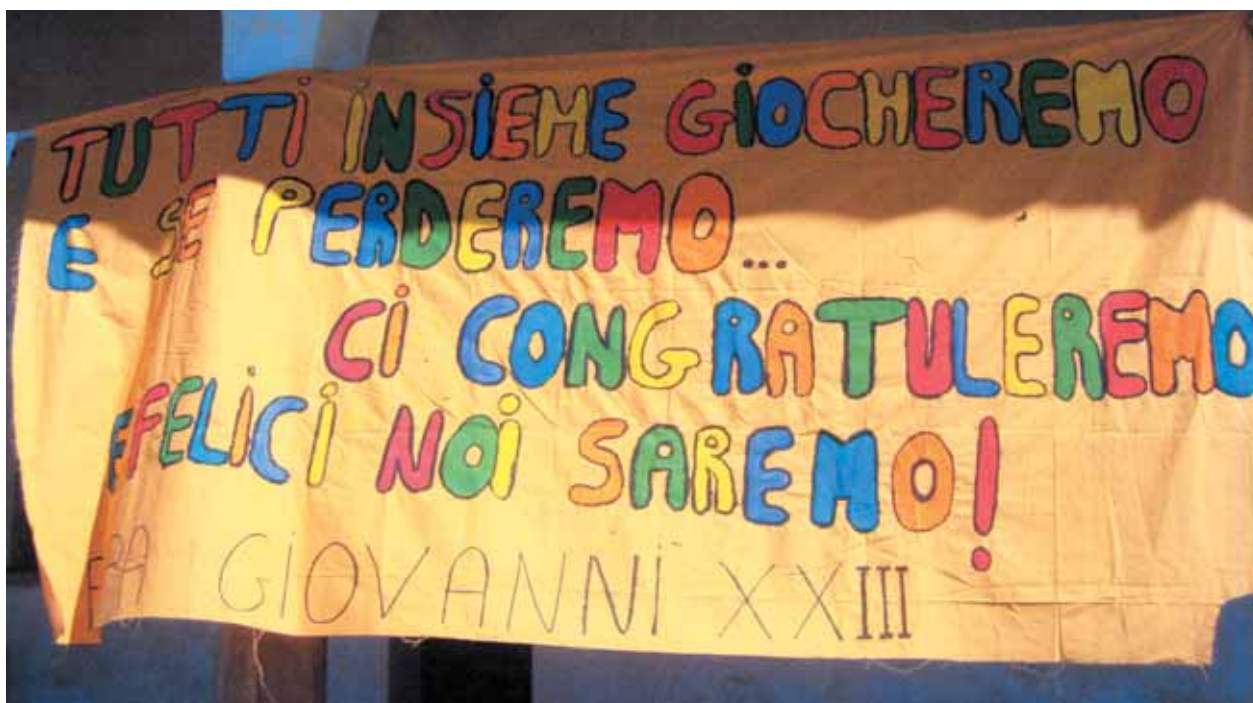 TUTTI INSIEME GIOCHEREMO
E SE PERDEREMO...
CI CONGRATULEREMO
E FELICI NOI SAREMO!
GIOVANNI XXIII